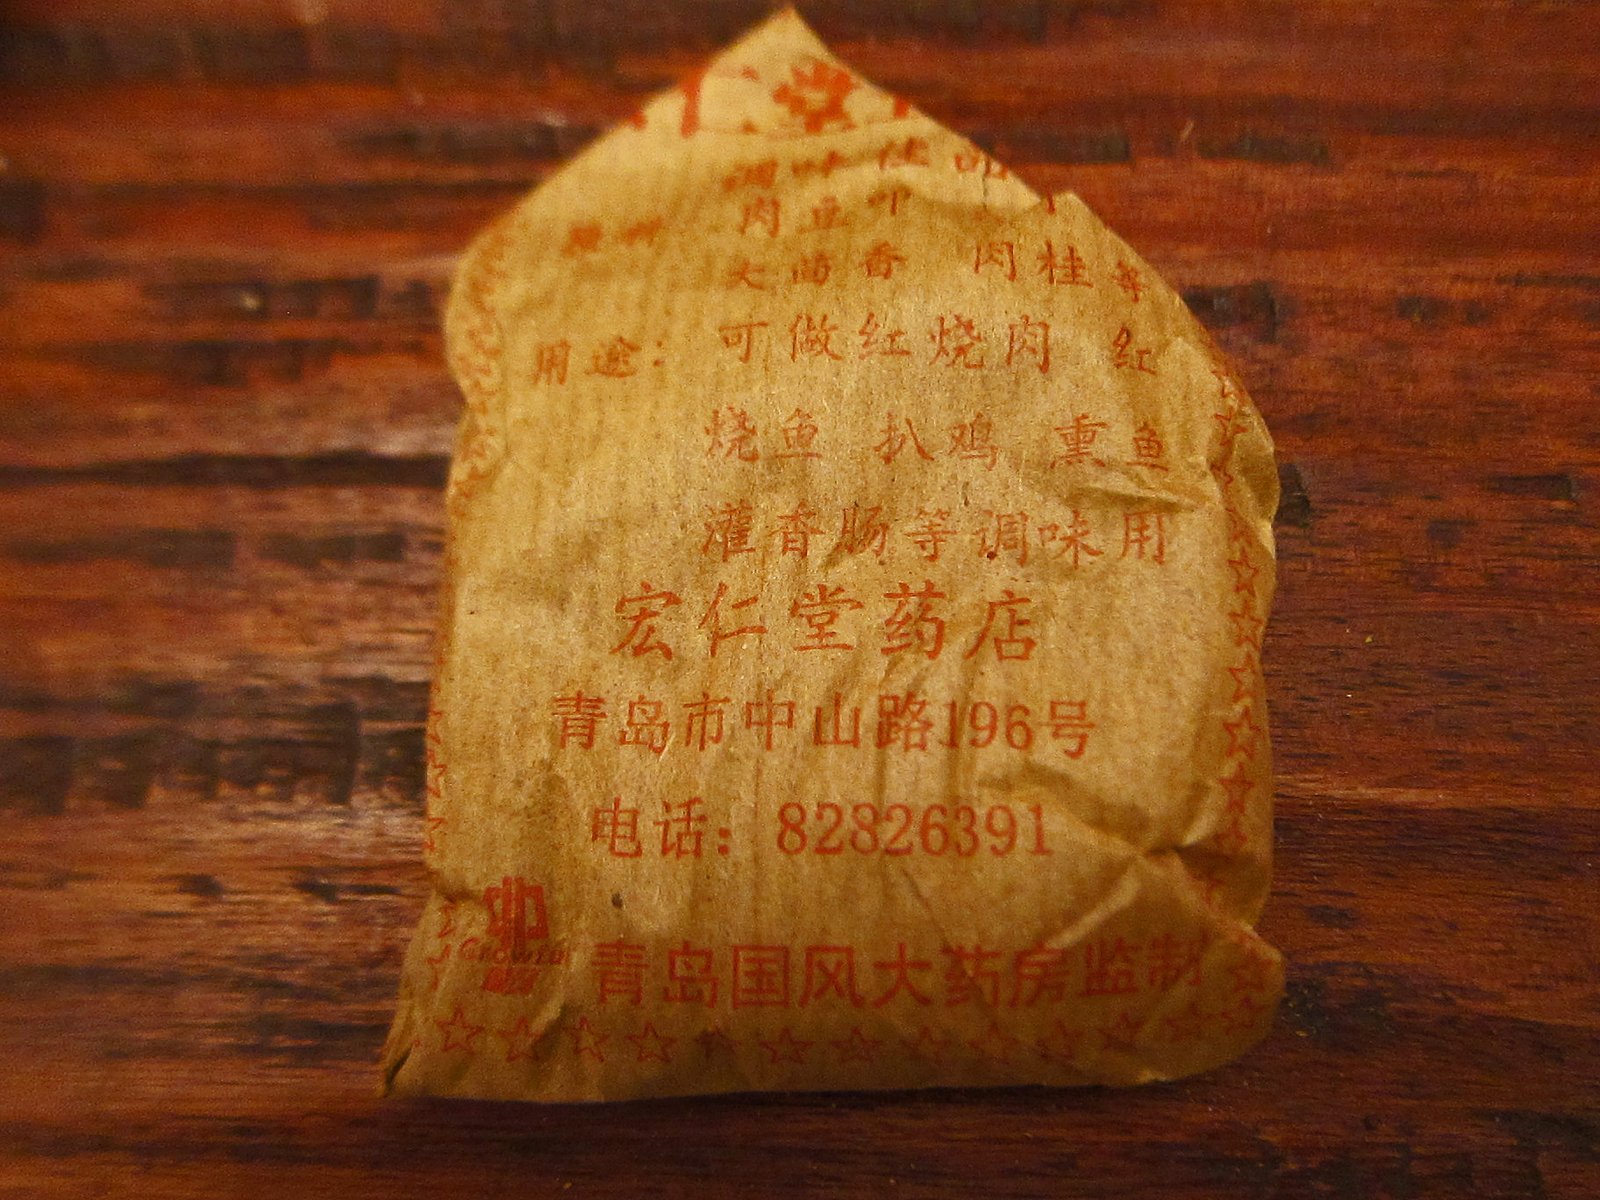 调味佳品
原料 肉豆叩
大茴香 肉桂等
用途： 可做红烧肉 红
烧鱼 扒鸡 熏鱼
灌香肠等调味用
宏仁堂药店
青岛市中山路196号
电话：82826391
GROWFUL
青岛国风大药房监制